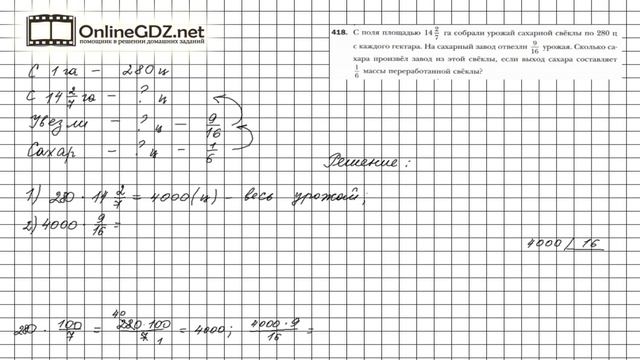 OnlineGDZ.net
ПОМОЩНИК В РЕШЕНИИ ДОМАШНИХ ЗАДАНИЙ
418. С поля площадью 14 2/7 га собрали урожай сахарной свёклы по 280 ц
с каждого гектара. На сахарный завод отвезли 9/16 урожая. Сколько са-
хара произвёл завод из этой свёклы, если выход сахара составляет
1/6 массы переработанной свёклы?
С 1 га – 280 ц
С 14 2/7 га – ? ц
Увезли – ? ц – 9/16
Сахар – ? ц – 1/6
Решение:
1) 280 · 14 2/7 = 4000 (ц) – весь урожай;
2) 4000 · 9/16 =
4000 | 16
280 · 100/7 = 40 280·100/7 1 = 4000; 4000·9/16 =